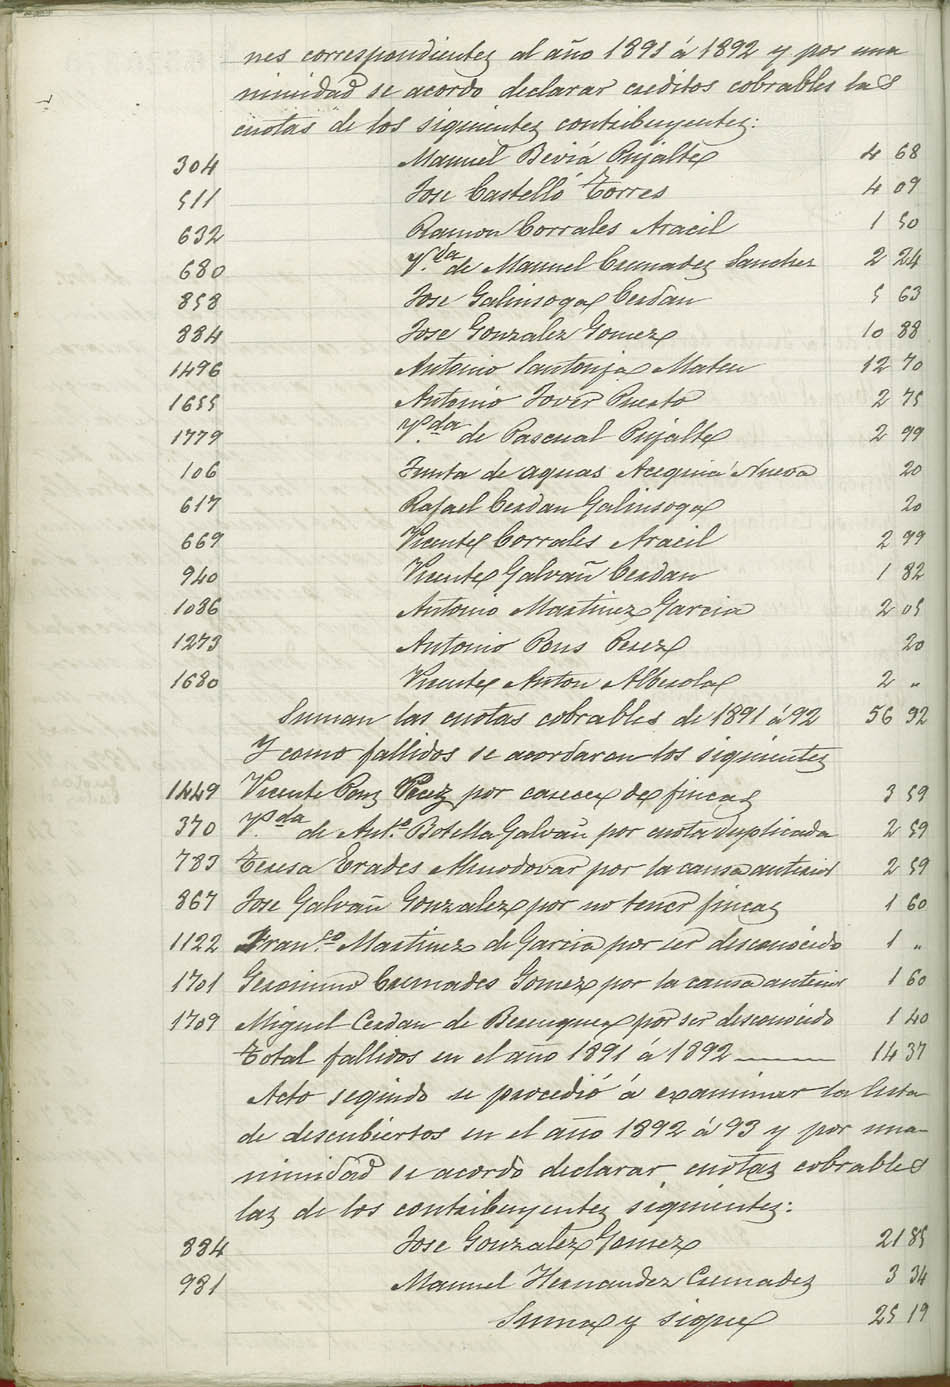 nes correspondientes al año 1891 á 1892 y por una
nimidad se acordo declarar creditos cobrables las
cuotas de los siguientes contribuyentes:
304 Manuel Beviá Pujalte 4 68
511 Jose Castelló Torres 4 09
632 Ramon Corrales Aracil 1 50
680 V.da de Manuel Cremades Sanchez 2 24
858 Jose Galinsoga Cerdan 5 63
884 Jose Gonzalez Gomez 10 88
1496 Antonio Santonja Mateu 12 70
1655 Antonio Jover Puerto 2 75
1779 V.da de Pascual Pujalte 2 99
106 Junta de aguas Acequia Nueva 20
617 Rafael Cerdan Galinsoga 20
669 Vicente Corrales Aracil 2 99
940 Vicente Galvañ Cerdan 1 82
1086 Antonio Martinez Garcia 2 05
1273 Antonio Pons Perez 20
1680 Vicente Anton Alberola 2 "
Suman las cuotas cobrables de 1891 á 92 56 92
Y como fallidos se acordaron los siguientes
1449 Vicente Pons Perez por carecer de fincas 3 59
370 V.da de Ant.o Botella Galvañ por cuota duplicada 2 59
783 Teresa Erades Almodovar por la causa anterior 2 59
867 Jose Galvañ Gonzalez por no tener fincas 1 60
1122 Fran.co Martinez de Garcia por ser desconocido 1 "
1701 Geronimo Cremades Gomez por la causa anterior 1 60
1709 Miguel Cerdan de Berenguer por ser desconocido 1 40
Total fallidos en el año 1891 á 1892 14 37
Acto seguido se procedió á examinar la lista
de descubiertos en el año 1892 á 93 y por una-
nimidad se acordo declarar cuotas cobrables
las de los contribuyentes siguientes:
884 Jose Gonzalez Gomez 21 85
981 Manuel Hernandez Cremades 3 34
Suma y sigue 25 19